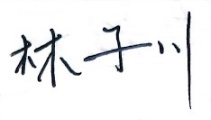 林子川